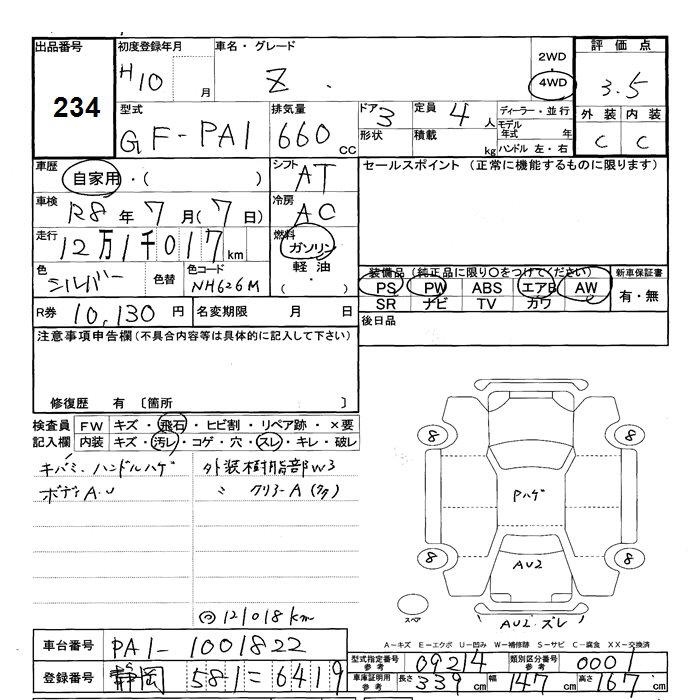 出品番号 初度登録年月 車名・グレード 2WD 評価点
234 H10 月 Z. 4WD 3.5
型式 排気量 ドア 3 定員 4 人 ディーラー・並行 外装 内装
GF-PA1 660 CC 形状 積載 kg モデル年式 年 C C
ハンドル 左・右
車歴 自家用・( ) シフト AT セールスポイント (正常に機能するものに限ります)
車検 R8 年 7 月( 7 日) 冷房 AC
走行 12万1千017 km 燃料 ガソリン
色 シルバー 色替 色コード NH626M 軽油 ( ・ )
装備品(純正品に限り○をつけてください) 新車保証書
PS PW ABS エアB AW 有・無
SR ナビ TV カワ
R券 10,130 円 名変期限 月 日 後日品
注意事項申告欄(不具合内容等は具体的に記入して下さい)
修復歴 有 〔箇所 〕
検査員 FW キズ・飛石・ヒビ割・リペア跡・×要
記入欄 内装 キズ・汚レ・コゲ・穴・スレ・キレ・破レ
キバミ.ハンドルハゲ 外装樹脂部W3
ボディA.U 〃 クリアーA(クク)
8 8
Pハゲ
8 8
AU2
スペア AU2.ズレ
121018km
A-キズ E-エクボ U-凹み W-補修跡 S-サビ C-腐食 XX-交換済
車台番号 PA1-1001822 型式指定番号 参考 09214 類別区分番号 参考 0001
登録番号 静岡 581=6419 車庫証明用 参考 長さ 339 cm 幅 147 cm 高さ 167 cm